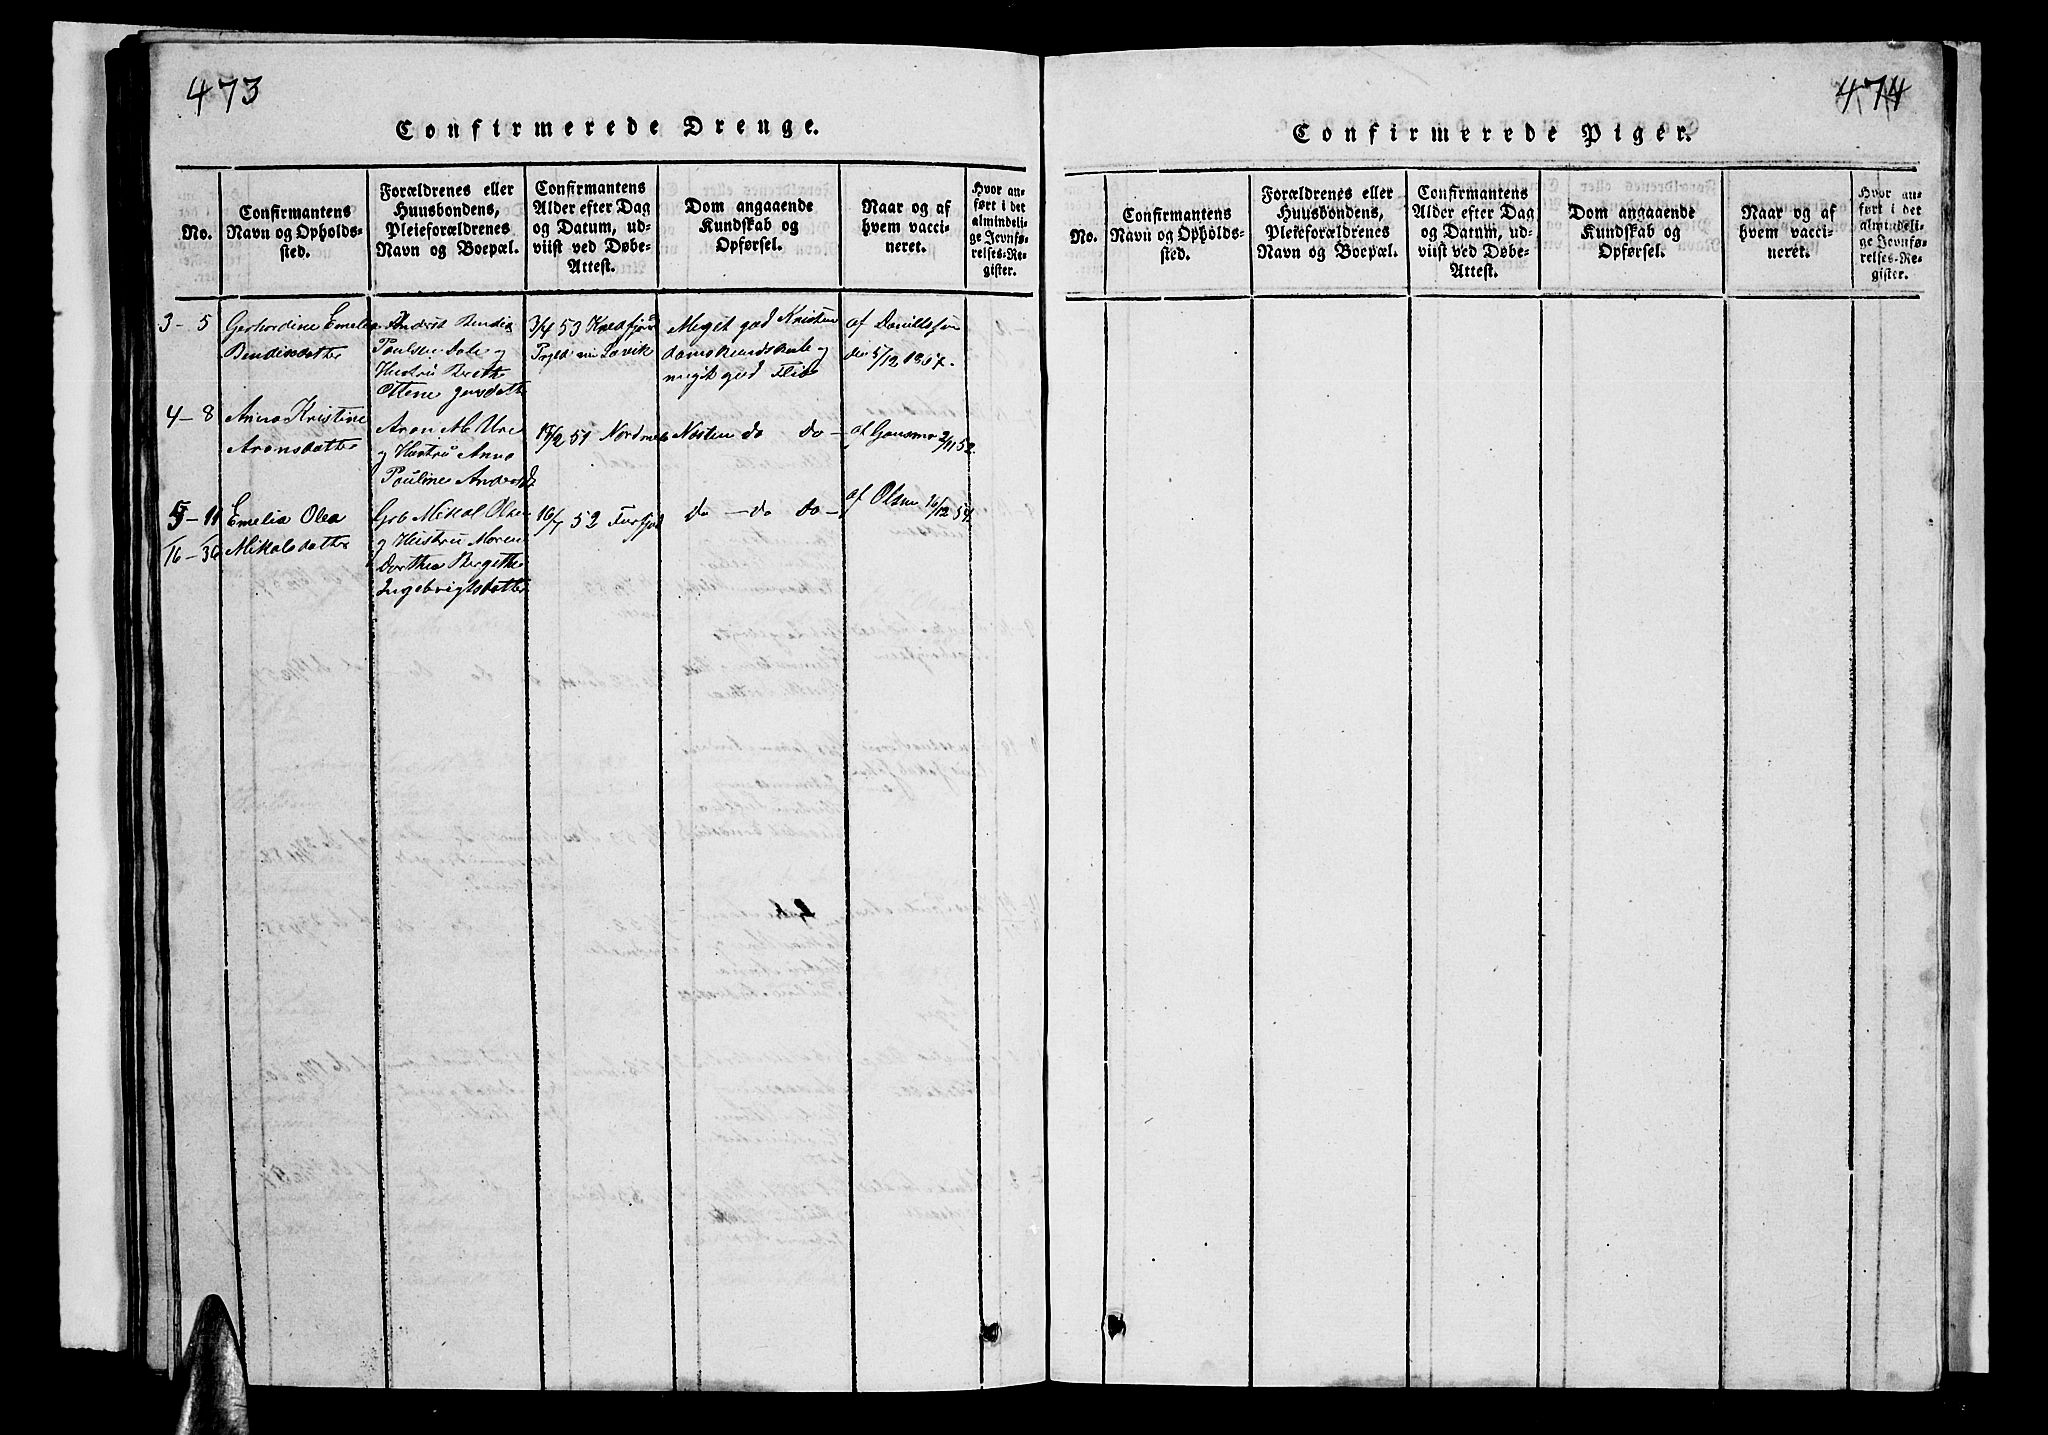 473
Confirmerede Drenge.
No.
Confirmantens
Navn og Opholds-
sted.
Forældrenes eller
Huusbondens,
Pleieforældrenes
Navn og Boepæl.
Confirmantens
Alder efter Dag
og Datum, ud-
viist ved Døbe-
Attest.
Dom angaaende
Kundskab og
Opførsel.
Naar og af
hvem vacci-
neret.
Hvor an-
ført i det
almindeli-
ge Jevnfø-
relses-Re-
gister.
3 - 5
Gerhardine Emelie
Bendiksdatter
Bendix
Paulsen og
Hustru Berith
Ottine
3/4 53
Meget god Kristen
domskundskab og
meget god Flid
af Danielsen
den 5/12 1867.
4 - 8
Anna Kristine
Aronsdatter
Aron
og Hustru Anna
Pauline
51
Næsten do do -
af 52
5 - 11
16 - 36
Emelie Olea
Mikalsdatter
Mikal Olsen
og Hustru Maren
Dorthea Bergithe
Ingebrigtsdatter
16/7 52
do - do do -
af Olsen 16/12 54
474
Confirmerede Piger.
No.
Confirmantens
Navn og Opholds-
sted.
Forældrenes eller
Huusbondens,
Pleieforældrenes
Navn og Boepæl.
Confirmantens
Alder efter Dag
og Datum, ud-
viist ved Døbe-
Attest.
Dom angaaende
Kundskab og
Opførsel.
Naar og af
hvem vacci-
neret.
Hvor an-
ført i det
almindeli-
ge Jevnfø-
relses-Re-
gister.